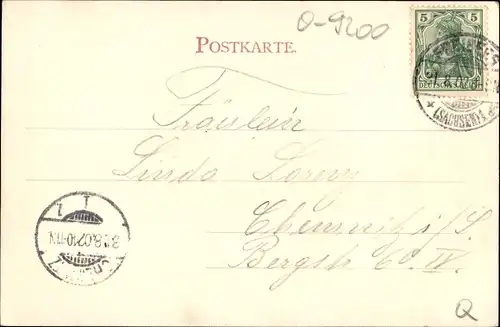 O-9200
POSTKARTE.
5 5
DEUTSCHES REICH
(SACHSEN)
Fräulein
Linda Lorenz
Chemnitz i/S.
Bergstr. 60. IV.
31.8.02.10-11V.
Q